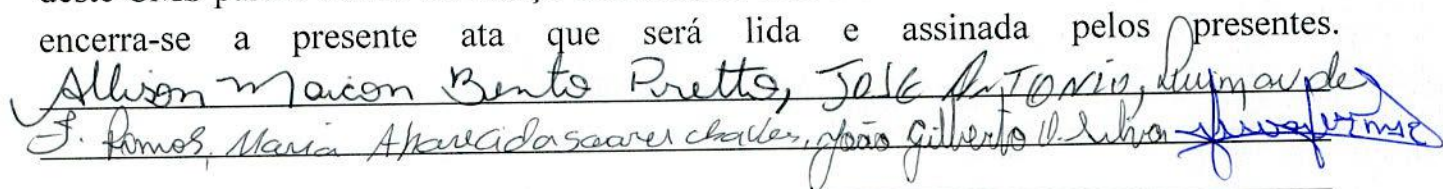 encerra-se a presente ata que será lida e assinada pelos presentes.
Allison Maicon Bento Pretto, JOSE ANTONIO, de
J. Ramos, Maria Aparecida soares, João Gilberto D. Silva